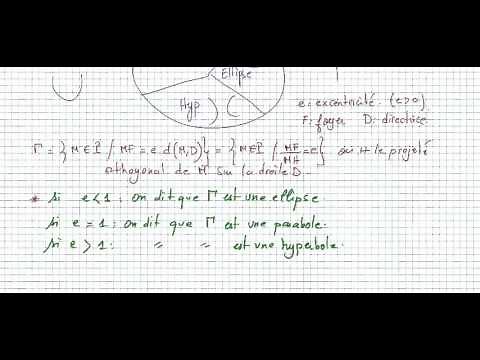 Ellipse
Hyp
e: excentricité. (e>0)
F: foyer D: directrice
Γ = {M ∈ P / MF = e d(M,D)} = {M ∈ P / MF/MH = e} où H le projeté
orthogonal de M sur la droite D.
* si e < 1 : on dit que Γ est une ellipse.
si e = 1 : on dit que Γ est une parabole.
si e > 1 : " " est une hyperbole.